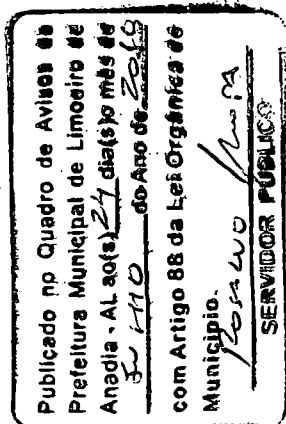 Publicado no Quadro de Avisos da
Prefeitura Municipal de Limoeiro de
Anadia - AL ao(s) 24 dia(s) o mês de
do Ano de
com Artigo 88 da Lei Orgânica do
Município.
SERVIDOR PUBLICO